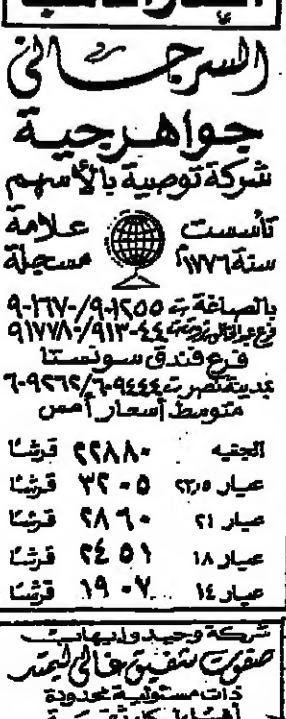 أسعار الذهب
السرجاني
جواهرجية
شركة توصية بالأسهم
تأسست علامة
سنة ١٧٧٦ مسجلة
بالصاغة ت ٩٠١٢٥٥/٩٠١٦٧٠
فرع ٩١٣٠٤٤/٩١٧٧٨٠
فرع فندق سونستا
بمدينة نصر ت ٦٠٩٤٤٤/٦٠٩٢٦٢
متوسط أسعار أمس
الجنيه ٢٢٨٨٠ قرشا
عيار ٢٣٫٥ ٣٢٠٥ قرشا
عيار ٢١ ٢٨٦٠ قرشا
عيار ١٨ ٢٤٥١ قرشا
عيار ١٤ ١٩٠٧ قرشا
شركة وحيد وايهاب
صفوت شفيق غالي ليمتد
ذات مسئولية محدودة